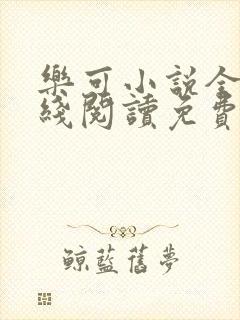 樂可小說全
綫閱讀免費
鯨藍舊夢